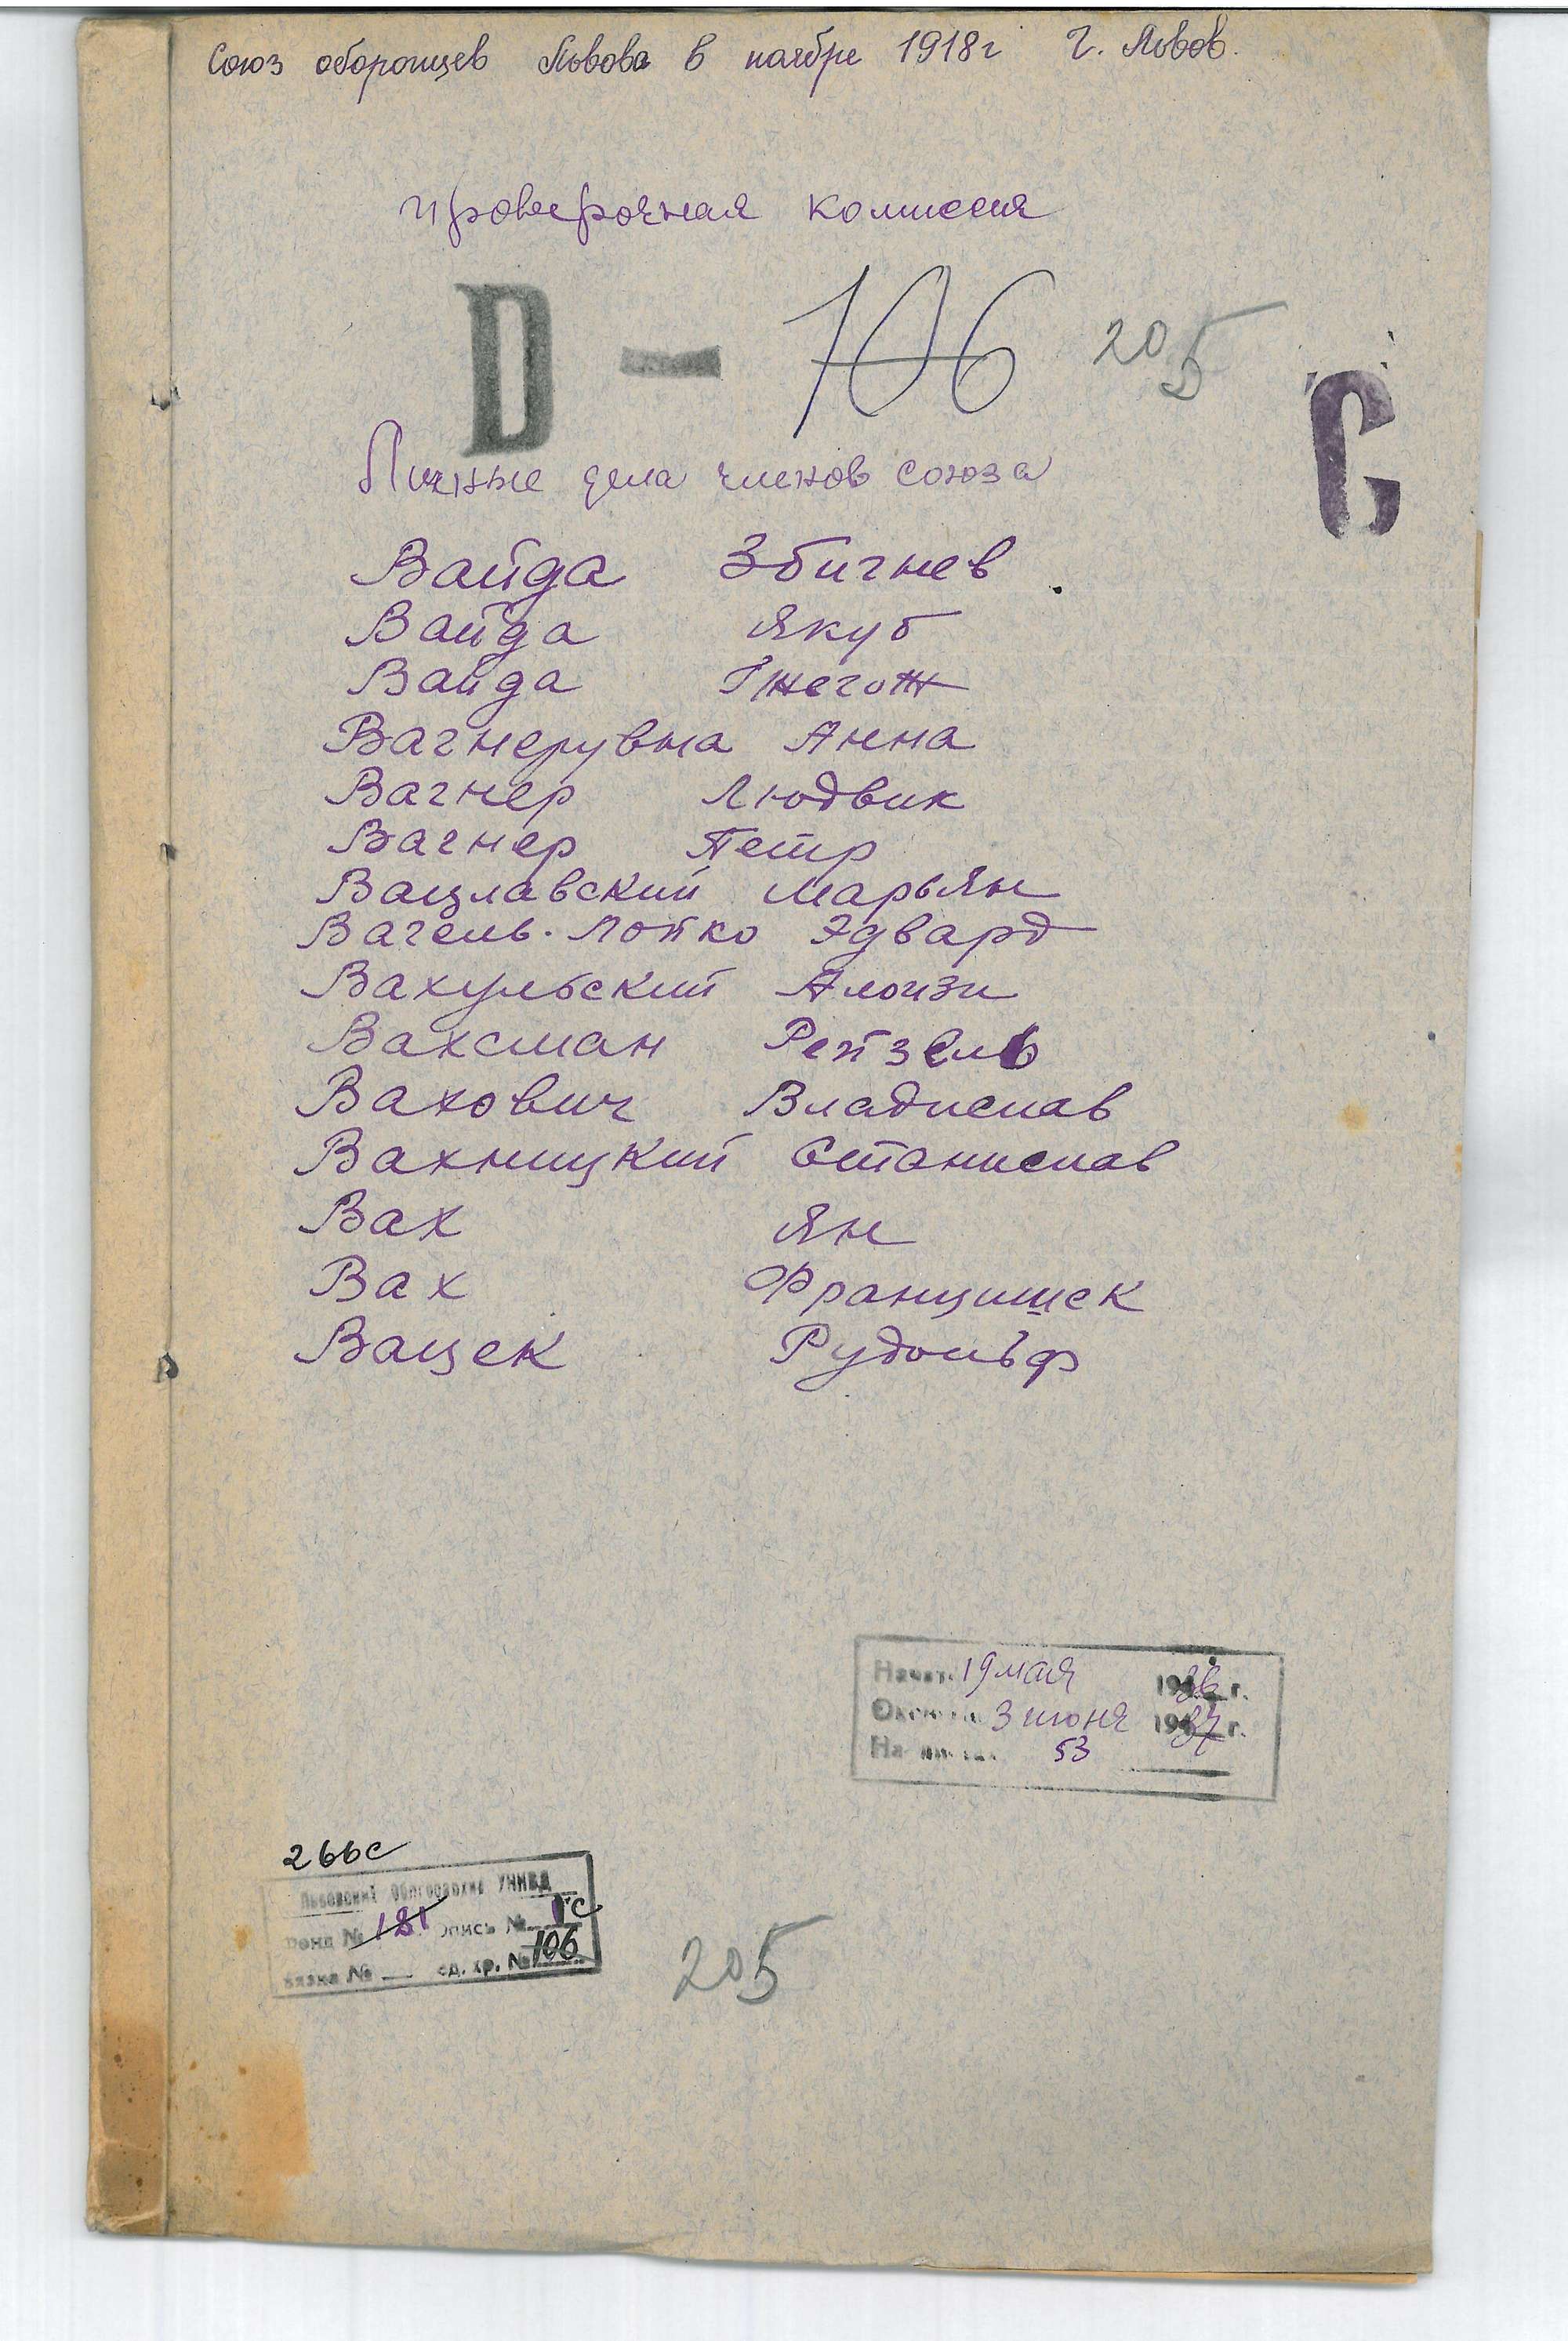 Союз оборонцев Львова в ноябре 1918г г. Львов.
проверочная комиссия
D — 106 205
С
Личные дела членов союза
Вайда Збигнев
Вайда Якуб
Вайда Гжегож
Вагнерувна Анна
Вагнер Людвик
Вагнер Петр
Вацлавский Марьян
Вагель-Лойко Эдвард
Вахульский Алоизи
Вахсман Рейзель
Вахович Владислав
Вахницкий Станислав
Вах Ян
Вах Францишек
Вацек Рудольф
Начат 19 мая 1936 г.
Окончен 3 июня 1937 г.
На листах 53
266с
Львовский Облгосархив УНКВД
Фонд № 181 опись № 1с
вязка № — ед. хр. № 106
205